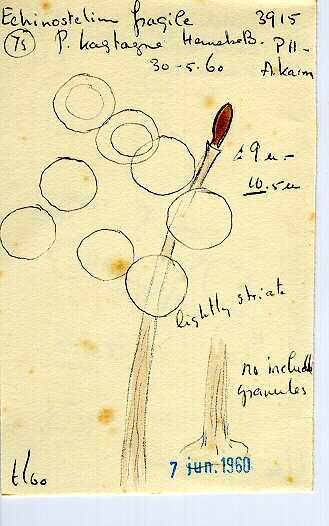 Echinostelium fragile 3915
(75) P. Hemebo B. PH-
30-5.60 A.Kaim
± 9 µ -
10.5 µ
lightly striate
no includ
granules
t/60
7 jun. 1960